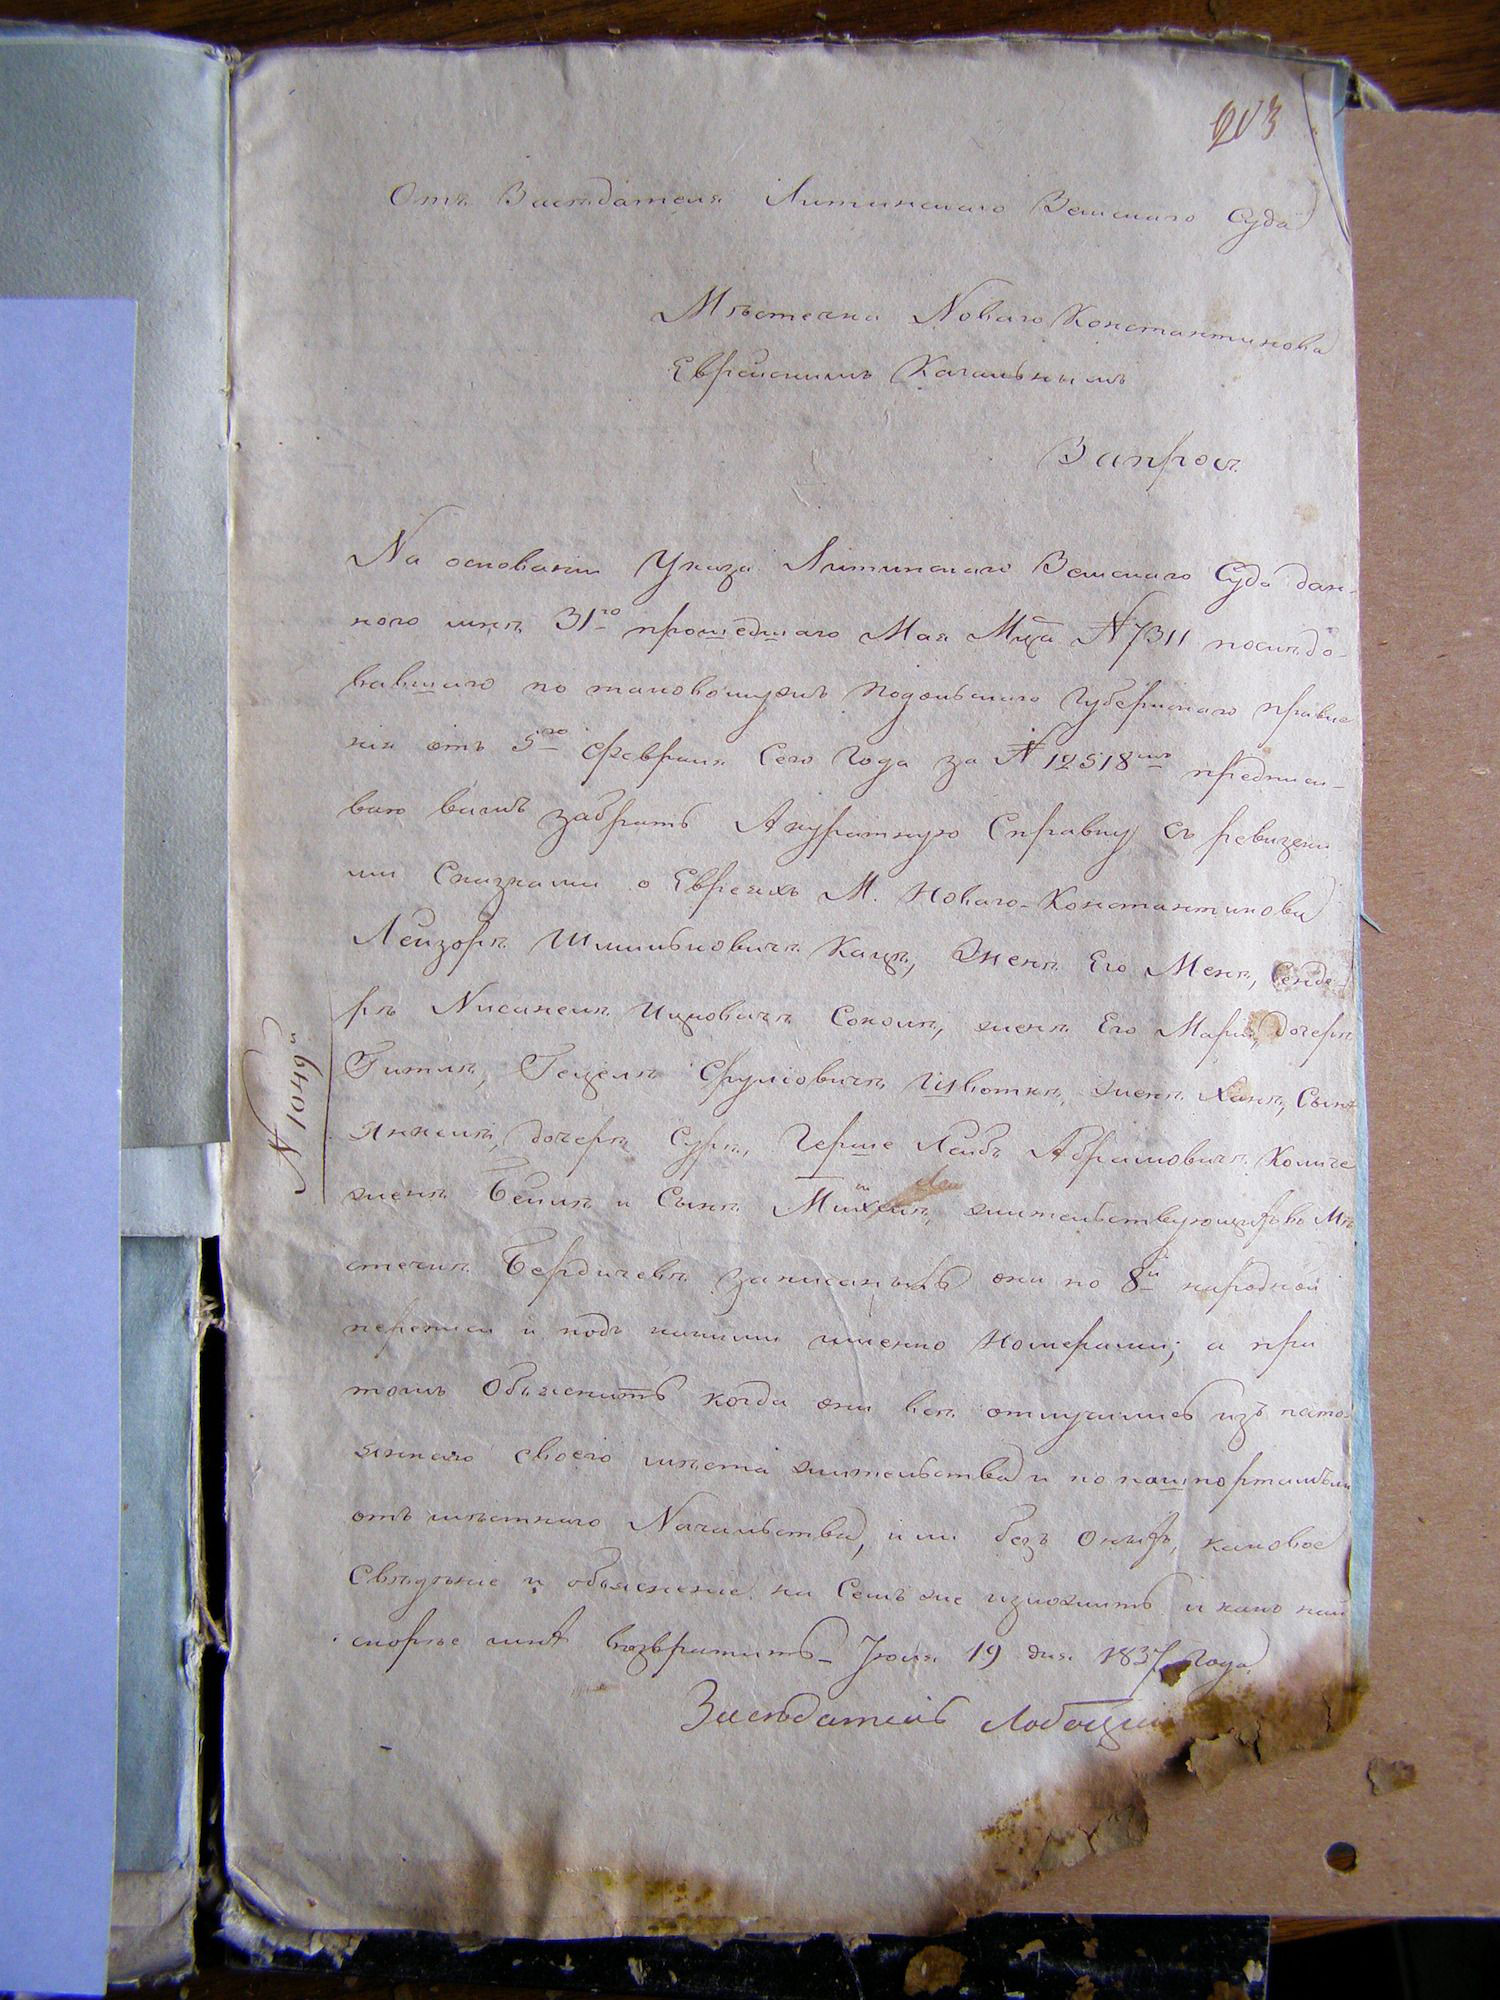 203
Отъ Засѣдателя Литинскаго Земскаго Суда
Мѣстечка Новаго Константинова
Еврейскимъ Кагальнымъ
Запросъ
На основаніи Указа Литинскаго Земскаго Суда дан-
ного мнѣ 31го прошедшаго Мая Мца № 7311 послѣдо-
вавшаго по таковому жъ Подольскаго Губернскаго Правле
нія отъ 5го Февраля Сего Года за № 12518мъ предписы-
ваю вамъ забрать Акуратную Справку съ ревизски
ми Сказками о Евреяхъ М. Новаго-Константинова
Лейзорѣ Шмульовичѣ Кацѣ, Женѣ Его Менѣ, Сенде-
рѣ Нисанелѣ Ицковичѣ Соколѣ, женѣ Его Маріѣ, дочерѣ
Гитлѣ, Гецелѣ Фроимовичѣ, женѣ Ханѣ, Сынѣ
Янкелѣ, дочерѣ Сурѣ, Герше Лейбѣ Абрамовичѣ
женѣ Бейлѣ и Сынѣ жительствующихъ въ Мѣ
стечкѣ Бердичевѣ записаны ль они по 8й народной
переписи и подъ какими именно Номерами; а при
томъ Объяснить когда они всѣ отлучились изъ посто
яннаго своего мѣста жительства и по пашпортамъ ли
отъ мѣстнаго Начальства, или безъ Оныхъ, каковое
Свѣдѣніе и объясненіе на Семъ же изложить и какъ най
скорѣе мнѣ возвратить - Іюля 19 дня 1837 Года.
Засѣдатель Лобоцкій
№ 1049й